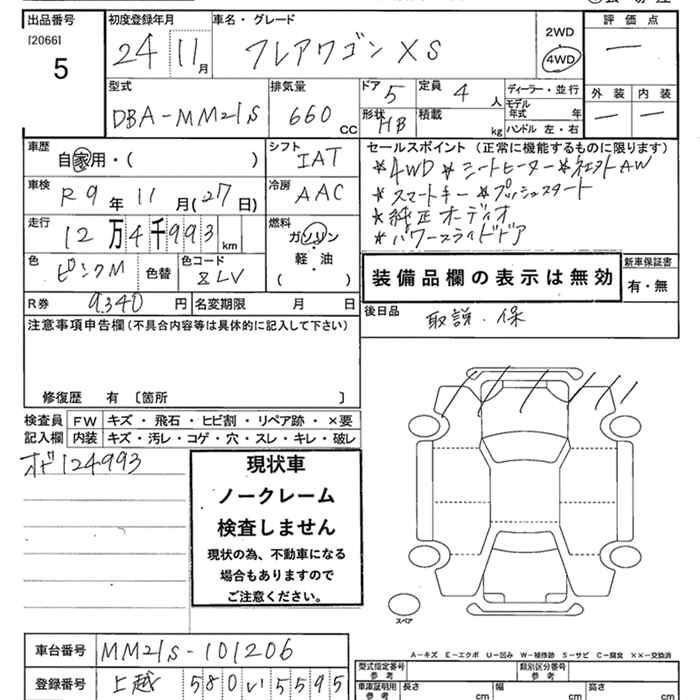 出品番号 初度登録年月 車名・グレード 評価点
[2066] 24 11月 フレアワゴン XS 2WD
5 4WD
型式 排気量 ドア 5 定員 4人 ディーラー・並行 外装 内装
DBA-MM21S 660cc 形状 HB 積載 kg モデル年式 年
ハンドル 左・右
車歴 自家用・( ) シフト IAT セールスポイント (正常に機能するものに限ります)
＊4WD ＊シートヒーター ＊社外AW
車検 R9年11月(27日) 冷房 AAC ＊スマートキー ＊プッシュスタート
走行 12万4千993km 燃料 ガソリン ＊純正オーディオ
軽・油 ＊パワースライドドア
( )
色 ピンクM 色替 色コード ZLV 装備品欄の表示は無効 新車保証書
有・無
R券 9,340円 名変期限 月 日 後日品 取説・保
注意事項申告欄(不具合内容等は具体的に記入して下さい)
修復歴 有 〔箇所 〕
検査員 FW キズ・飛石・ヒビ割・リペア跡・×要
記入欄 内装 キズ・汚レ・コゲ・穴・スレ・キレ・破レ
オド124993
現状車
ノークレーム
検査しません
現状の為、不動車になる
場合もありますので
ご注意ください。
スペア
A-キズ E-エクボ U-凹み W-補修跡 S-サビ C-腐食 ××-交換済
車台番号 MM21S-101206
型式指定番号 参考 類別区分番号 参考
登録番号 上越 580 い 5595
車庫証明用 参考 長さ cm 幅 cm 高さ cm